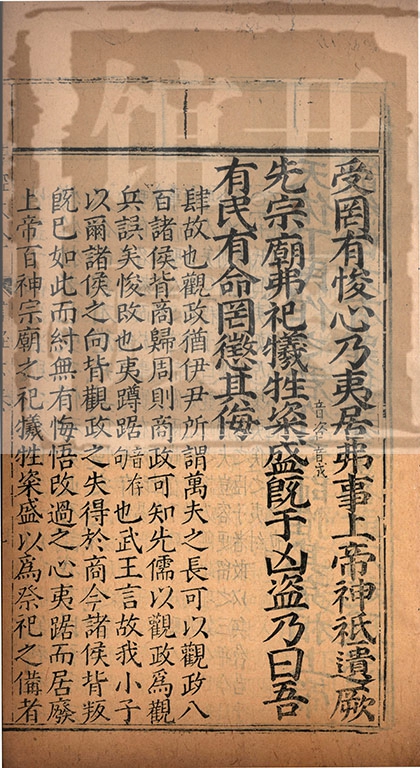 受罔有悛心乃夷居弗事上帝神祇遺厥
先宗廟弗祀犧牲粢盛旣于凶盜乃曰吾
音咨音成
有民有命罔懲其侮
肆故也觀政猶伊尹所謂萬夫之長可以觀政八
百諸侯背商歸周則商政可知先儒以觀政爲觀
兵誤矣悛改也夷蹲踞音存也武王言故我小子
以爾諸侯之向背觀政之失得於商今諸侯背叛
旣已如此而紂無有悔悟改過之心夷踞而居廢
上帝百神宗廟之祀犧牲粢盛以爲祭祀之備者